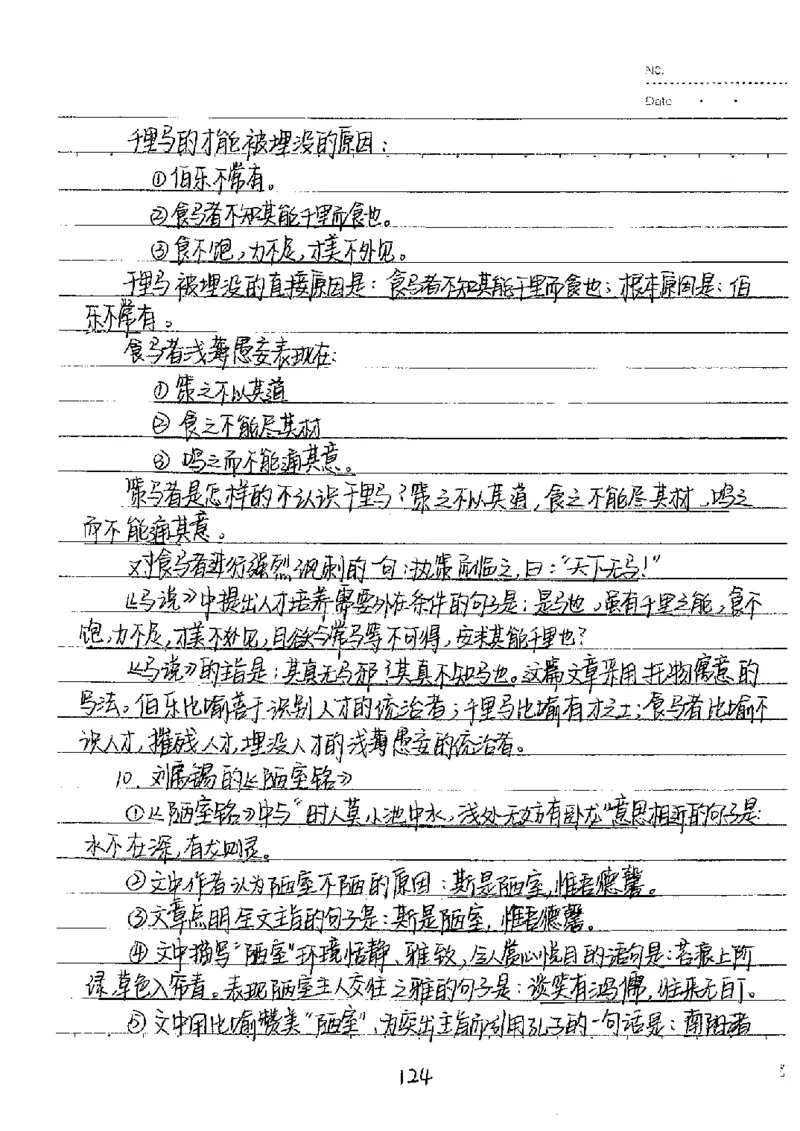 No.
Date
千里马的才能被埋没的原因：
①伯乐不常有。
②食马者不知其能千里而食也。
③食不饱，力不足，才美不外见。
千里马被埋没的直接原因是：食马者不知其能千里而食也；根本原因是：伯
乐不常有。
食马者浅薄愚妄表现在：
①策之不以其道
②食之不能尽其材
③鸣之而不能通其意。
策马者是怎样的不认识千里马？策之不以其道，食之不能尽其材，鸣之
而不能通其意。
对食马者进行强烈讽刺的一句：执策而临之，曰：“天下无马！”
《马说》中提出人才培养需要外在条件的句子是：是马也，虽有千里之能，食不
饱，力不足，才美不外见，且欲与常马等不可得，安求其能千里也？
《马说》的主旨是：其真无马邪？其真不知马也。这篇文章采用托物寓意的
写法。伯乐比喻善于识别人才的统治者；千里马比喻有才之士；食马者比喻不
识人才，摧残人才，埋没人才的浅薄愚妄的统治者。
10. 刘禹锡的《陋室铭》
①《陋室铭》中与“时人莫小池中水，浅处无妨有卧龙”意思相近的句子是：
水不在深，有龙则灵。
②文中作者认为陋室不陋的原因：斯是陋室，惟吾德馨。
③文章点明全文主旨的句子是：斯是陋室，惟吾德馨。
④文中描写“陋室”环境恬静、雅致，令人赏心悦目的语句是：苔痕上阶
绿，草色入帘青。表现陋室主人交往之雅的句子是：谈笑有鸿儒，往来无白丁。
⑤文中用比喻赞美“陋室”，为突出主旨而引用孔子的一句话是：南阳诸
124